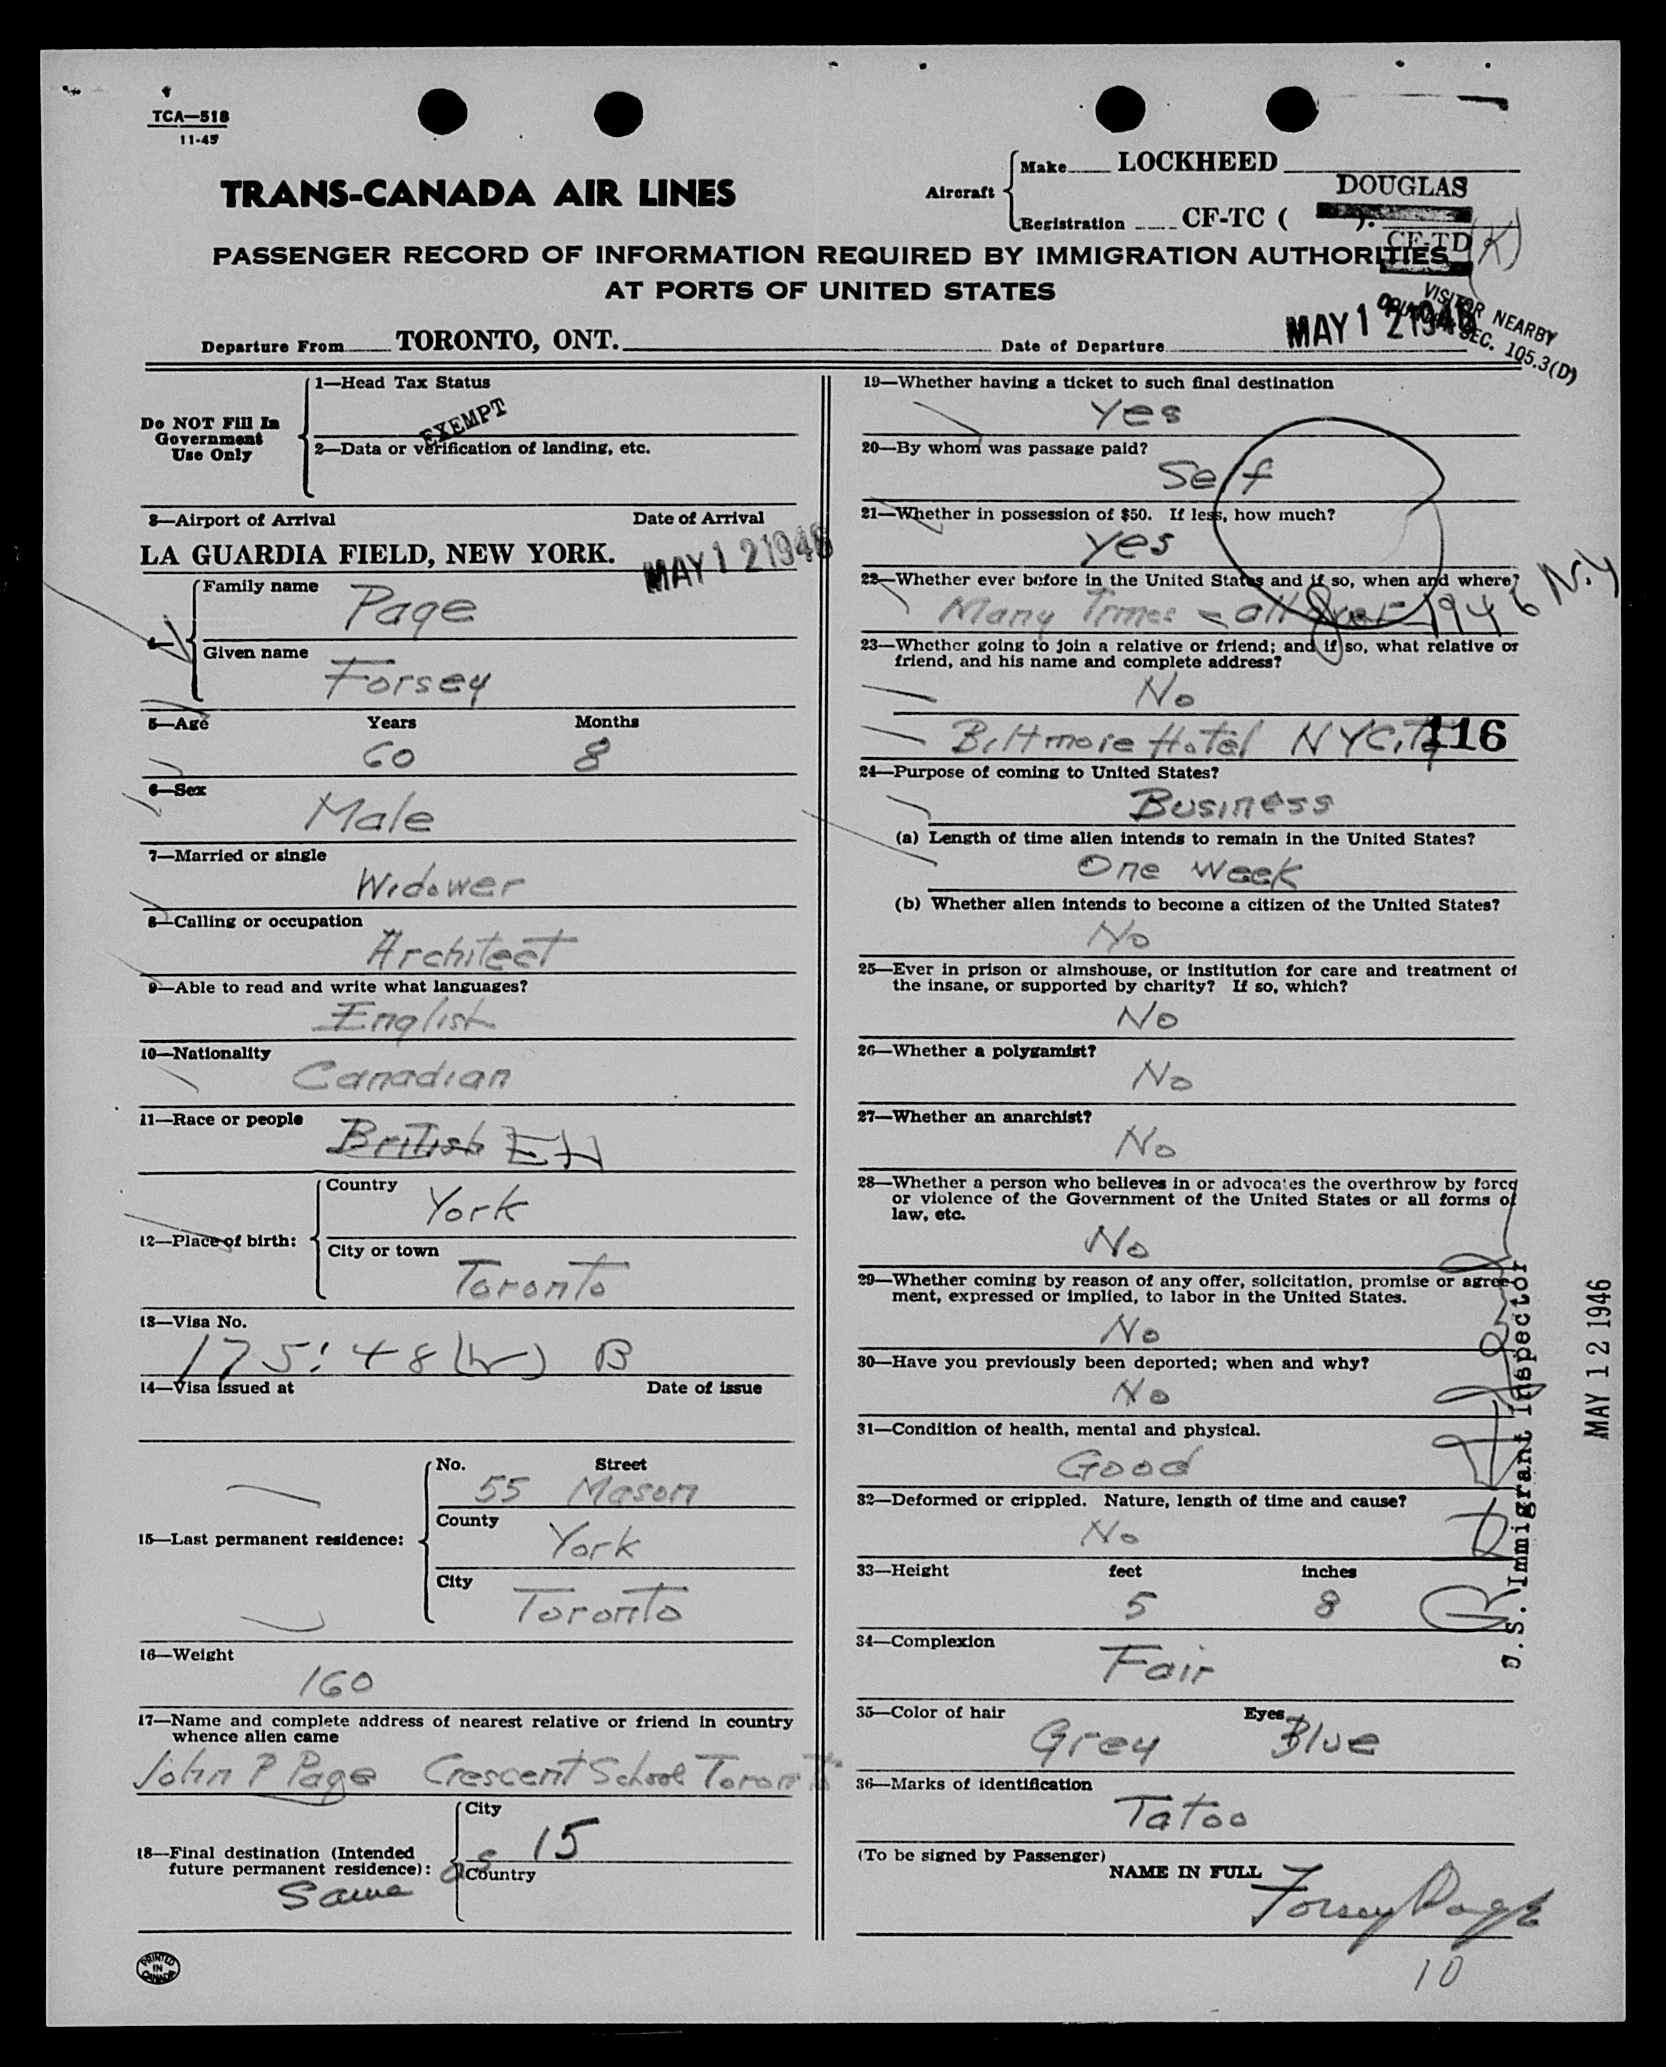 TCA—518
11-45
TRANS-CANADA AIR LINES
Aircraft
Make LOCKHEED
DOUGLAS
Registration CF-TC ( ).
CF-TD (K)
PASSENGER RECORD OF INFORMATION REQUIRED BY IMMIGRATION AUTHORITIES
AT PORTS OF UNITED STATES
VISITOR NEARBY
SEC. 105.3(D)
Departure From TORONTO, ONT.
Date of Departure MAY 12 1946
Do NOT Fill In
Government
Use Only
1—Head Tax Status
EXEMPT
2—Data or verification of landing, etc.
3—Airport of Arrival Date of Arrival
LA GUARDIA FIELD, NEW YORK. MAY 12 1946
4—
Family name
Page
Given name
Forsey
5—Age Years Months
60 8
6—Sex
Male
7—Married or single
Widower
8—Calling or occupation
Architect
9—Able to read and write what languages?
English
10—Nationality
Canadian
11—Race or people
British EH
12—Place of birth:
Country
York
City or town
Toronto
13—Visa No.
175: 48 B
14—Visa issued at Date of issue
15—Last permanent residence:
No. Street
55 Mason
County
York
City
Toronto
16—Weight
160
17—Name and complete address of nearest relative or friend in country
whence alien came
John P Page Crescent School Toronto
18—Final destination (Intended
future permanent residence):
City
15
Country
Same as
PRINTED
IN
CANADA
19—Whether having a ticket to such final destination
Yes
20—By whom was passage paid?
Self
21—Whether in possession of $50. If less, how much?
Yes
22—Whether ever before in the United States and if so, when and where?
Many Times - all over 1946 N.Y
23—Whether going to join a relative or friend; and if so, what relative or
friend, and his name and complete address?
No
Biltmore Hotel NYCity
116
24—Purpose of coming to United States?
Business
(a) Length of time alien intends to remain in the United States?
One Week
(b) Whether alien intends to become a citizen of the United States?
No
25—Ever in prison or almshouse, or institution for care and treatment of
the insane, or supported by charity? If so, which?
No
26—Whether a polygamist?
No
27—Whether an anarchist?
No
28—Whether a person who believes in or advocates the overthrow by force
or violence of the Government of the United States or all forms of
law, etc.
No
29—Whether coming by reason of any offer, solicitation, promise or agree-
ment, expressed or implied, to labor in the United States.
No
30—Have you previously been deported; when and why?
No
31—Condition of health, mental and physical.
Good
32—Deformed or crippled. Nature, length of time and cause?
No
33—Height feet inches
5 8
34—Complexion
Fair
35—Color of hair Eyes
Grey Blue
36—Marks of identification
Tatoo
(To be signed by Passenger)
NAME IN FULL Forsey Page
10
U.S. Immigrant Inspector
MAY 12 1946